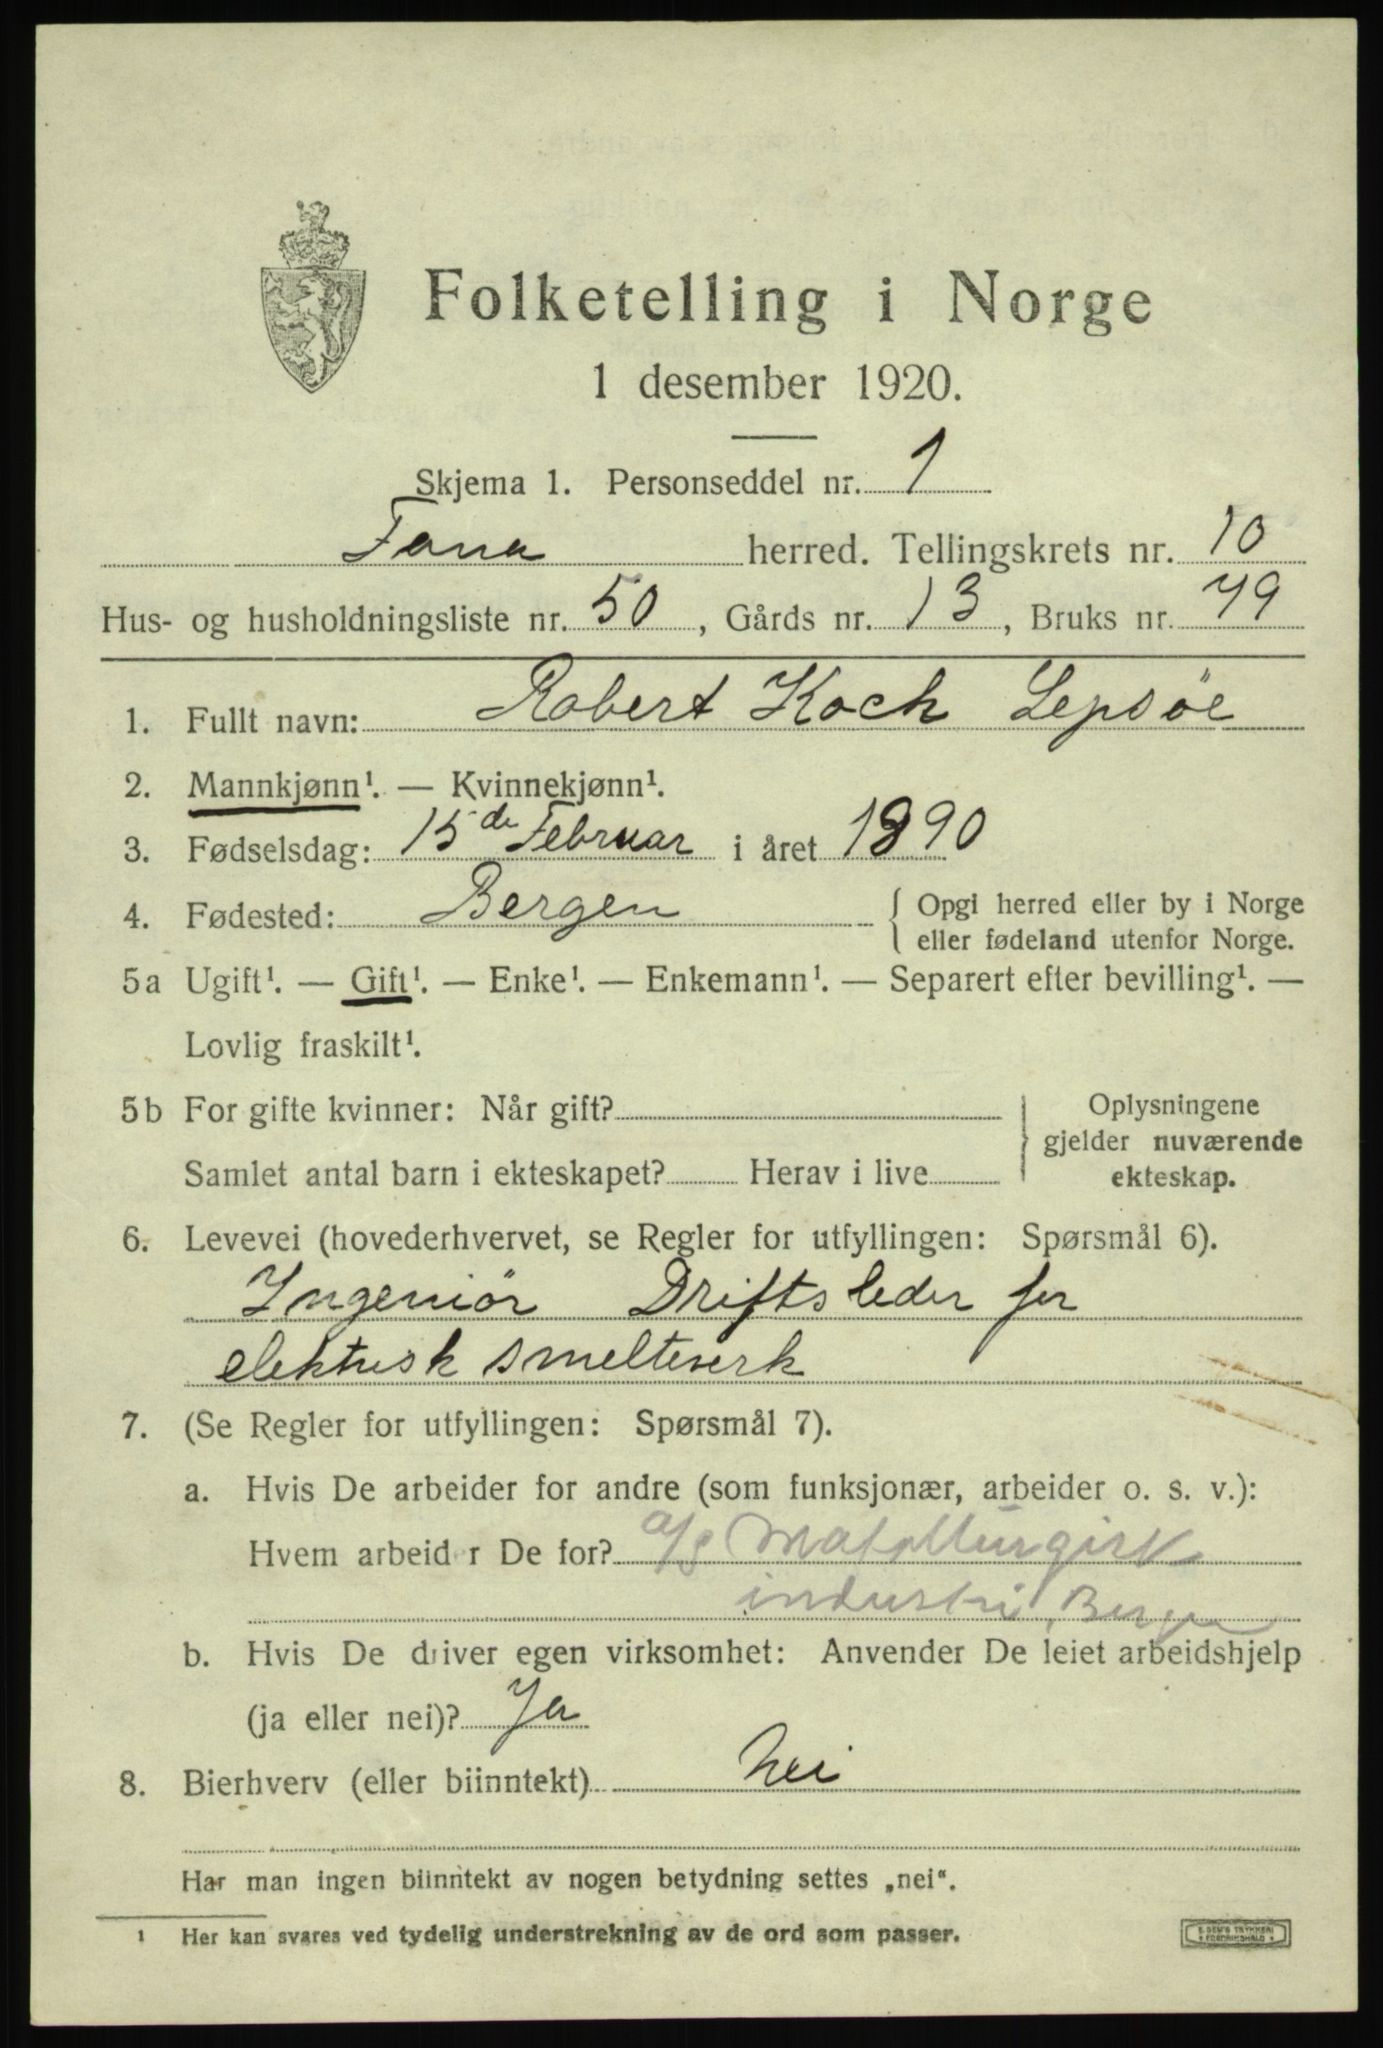 Folketelling i Norge
1 desember 1920.
Skjema 1. Personseddel nr. 1
Fana herred. Tellingskrets nr. 10
Hus- og husholdningsliste nr. 50, Gårds nr. 13, Bruks nr. 79
1. Fullt navn: Robert Koch Lepsöe
2. Mannkjønn¹. — Kvinnekjønn¹.
3. Fødselsdag: 15de Februar i året 1890
4. Fødested: Bergen { Opgi herred eller by i Norge
eller fødeland utenfor Norge.
5a Ugift¹. — Gift¹. — Enke¹. — Enkemann¹. — Separert efter bevilling¹. —
Lovlig fraskilt¹.
5b For gifte kvinner: Når gift? } Oplysningene
gjelder nuværende
Samlet antal barn i ekteskapet? Herav i live
ekteskap.
6. Levevei (hovederhvervet, se Regler for utfyllingen: Spørsmål 6).
Ingeniör Driftsleder for
elektrisk smelteverk
7. (Se Regler for utfyllingen: Spørsmål 7).
a. Hvis De arbeider for andre (som funksjonær, arbeider o. s. v.):
Hvem arbeider De for? a/s Metallurgisk
industri, Bergen
b. Hvis De driver egen virksomhet: Anvender De leiet arbeidshjelp
(ja eller nei)? Ja
8. Bierhverv (eller biinntekt) Nei
Har man ingen biinntekt av nogen betydning settes „nei“.
¹ Her kan svares ved tydelig understrekning av de ord som passer.
E. SEM'S TRYKKERI
FREDRIKSHALD